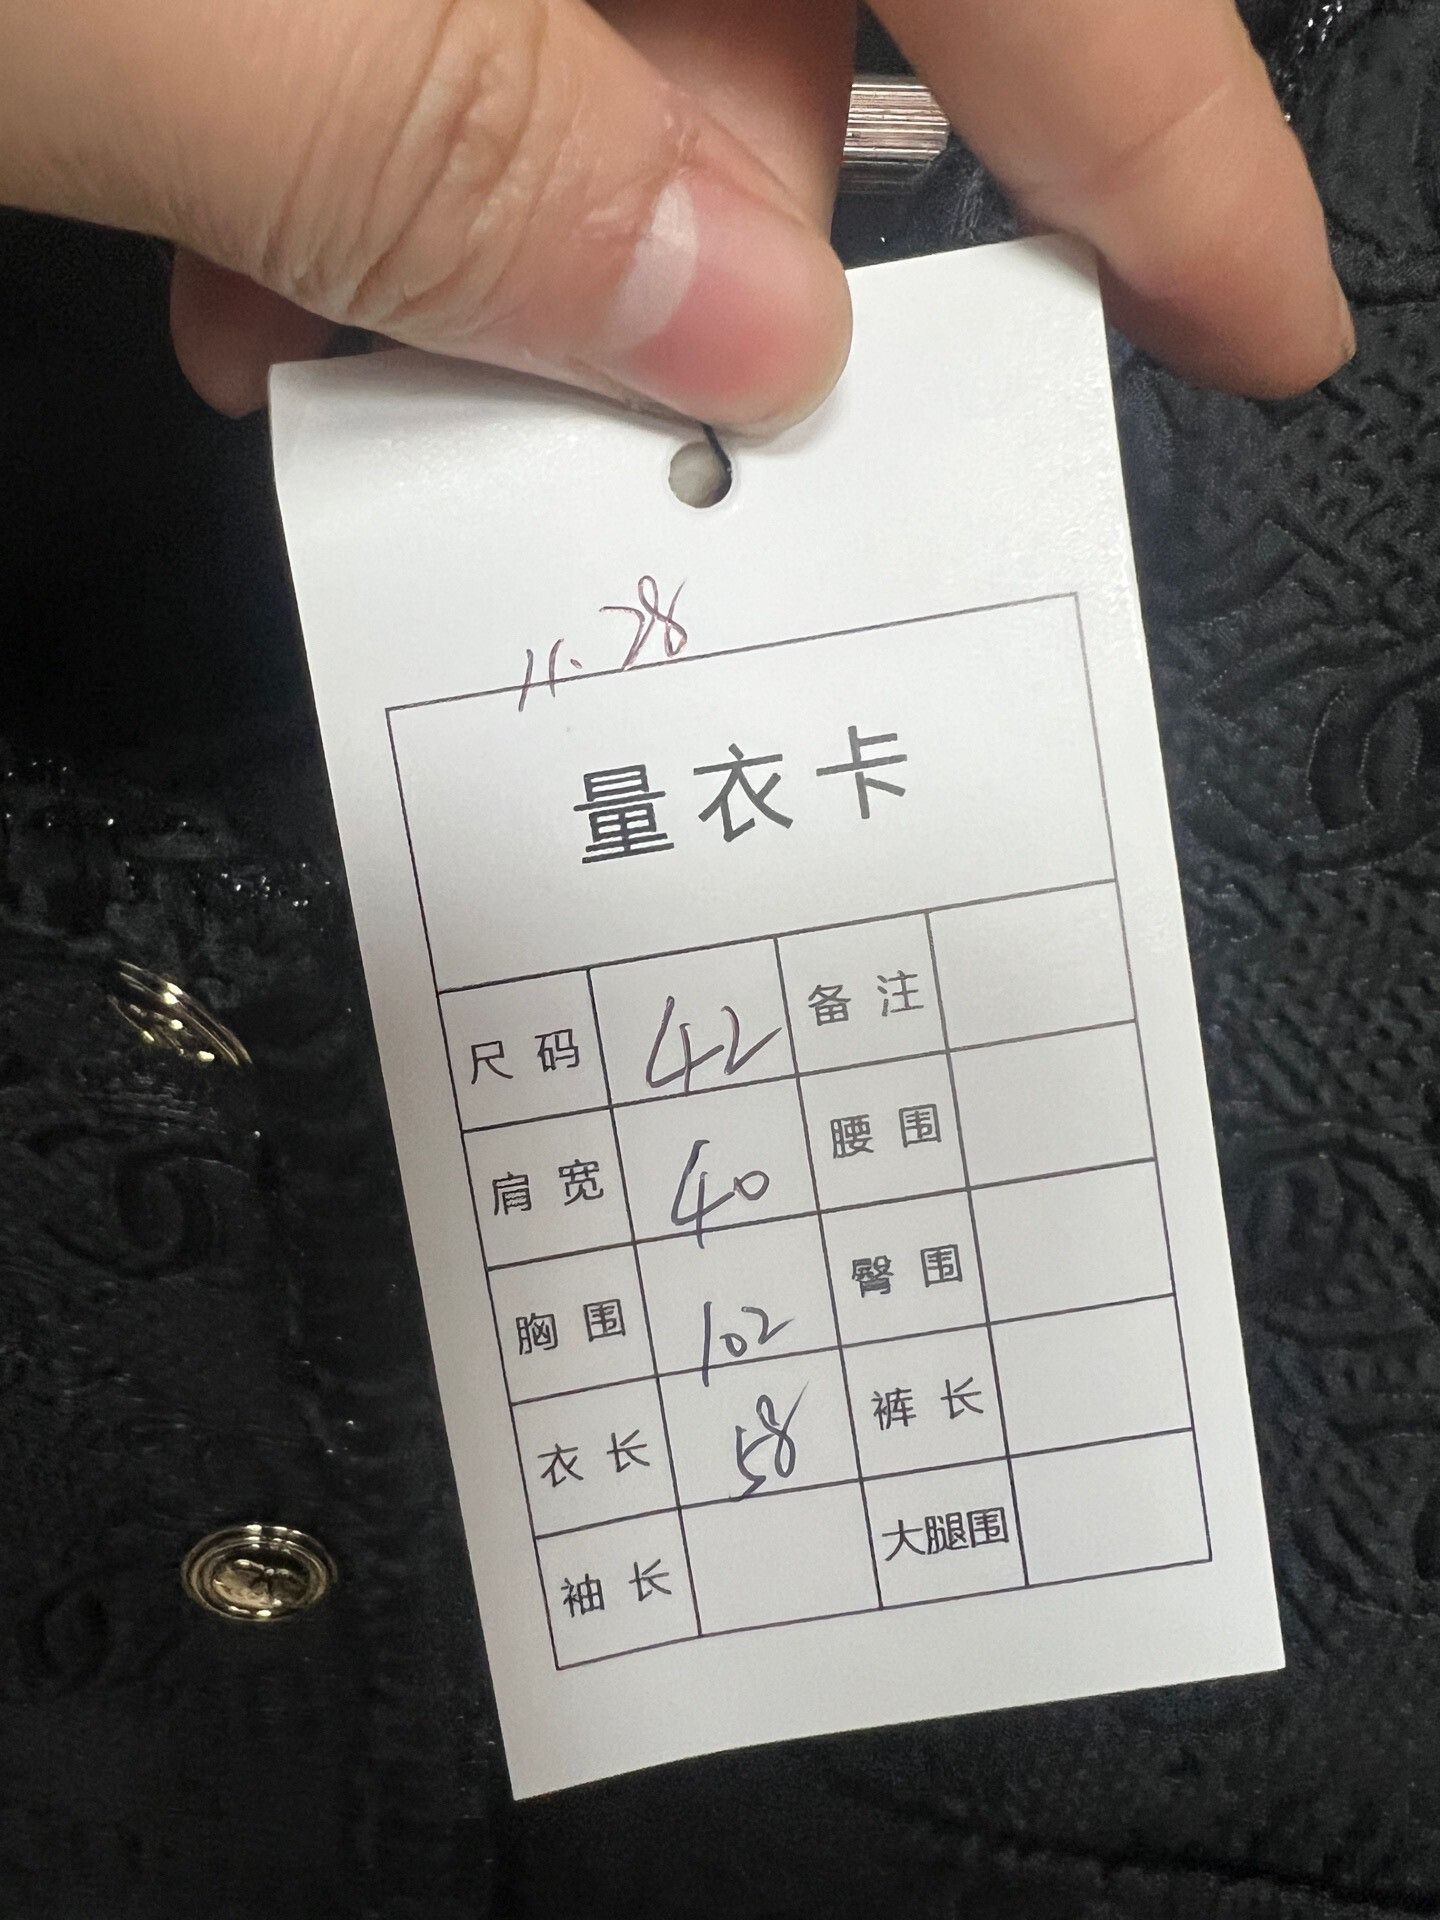 11.28
量衣卡
尺码 42 备注
肩宽 40 腰围
胸围 102 臀围
衣长 58 裤长
袖长 大腿围